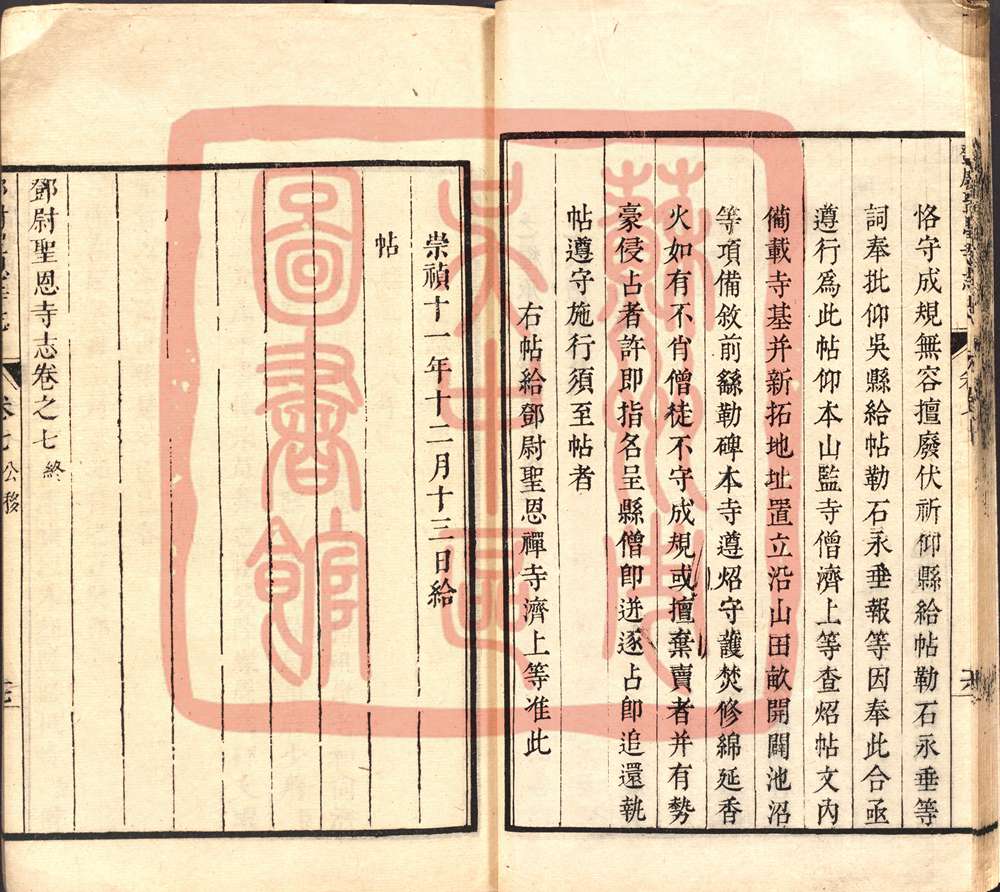 恪守成規無容擅廢伏祈仰縣給帖勒石永垂等
詞奉批仰吳縣給帖勒石永垂報等因奉此合亟
遵行爲此帖仰本山監寺僧濟上等查炤帖文內
備載寺基并新拓地址置立沿山田畝開闢池沼
等項備敘前繇勒碑本寺遵炤守護焚修綿延香
火如有不肖僧徒不守成規或擅棄賣者并有勢
豪侵占者許即指名呈縣僧卽迸逐占卽追還執
帖遵守施行須至帖者
右帖給鄧尉聖恩禪寺濟上等准此
崇禎十一年十二月十三日給
帖
鄧尉聖恩寺志卷之七 終
卷七 公移
蘇州市
吳中區
圖書館